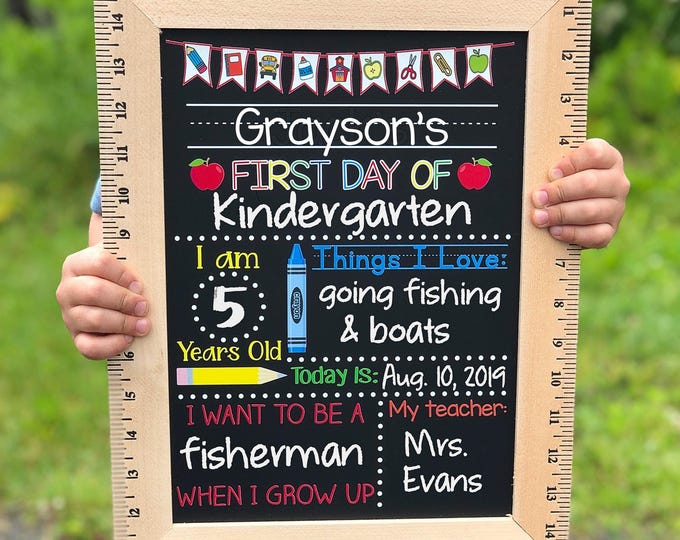 Grayson's
FIRST DAY OF
Kindergarten
I am
5
Years Old
crayon
Things I Love:
going fishing
& boats
Today Is: Aug. 10, 2019
I WANT TO BE A
fisherman
WHEN I GROW UP
My teacher:
Mrs.
Evans
14
13
12
11
10
9
8
7
6
5
4
3
2
1
2
3
4
5
6
7
8
9
10
11
12
13
14